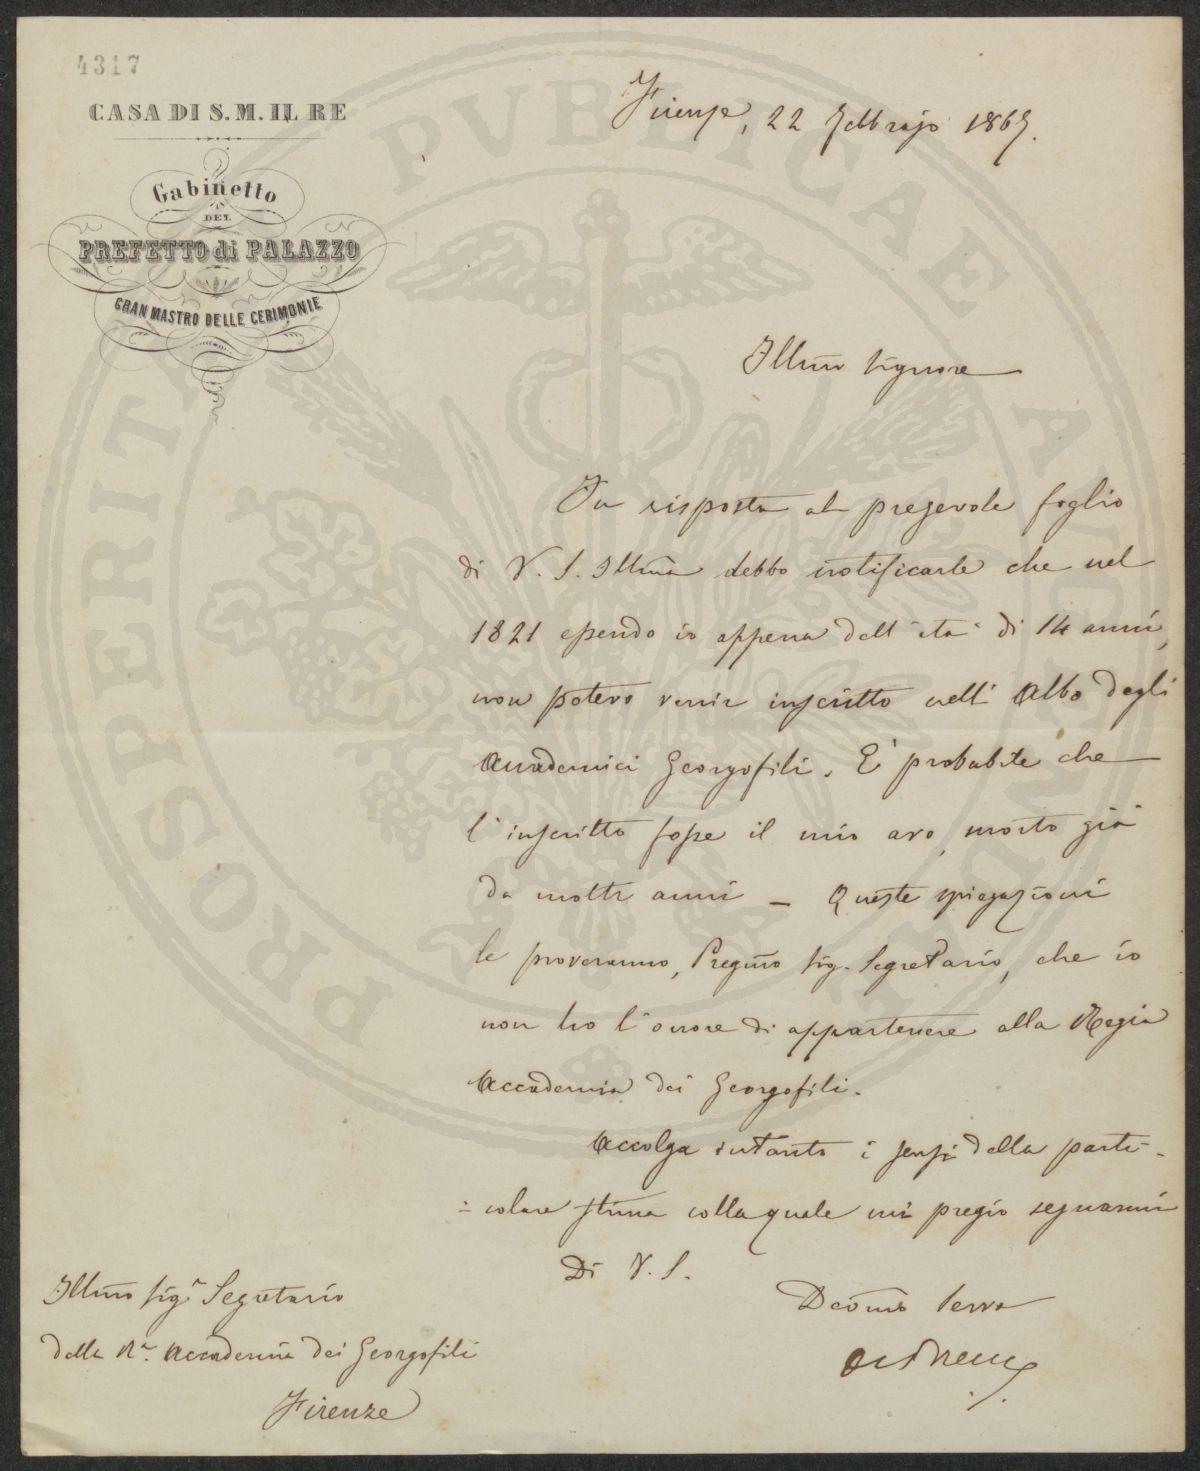 4317
CASA DI S. M. IL RE
Gabinetto
DEL
PREFETTO di PALAZZO
GRAN MASTRO DELLE CERIMONIE
PROSPERITATI PVBLICAE AVGENDAE
Firenze, 22 Febbrajo 186
Illmo Signore
In risposta al pregevole foglio
di V. S. Illma debbo notificarle che nel
1821 essendo io appena dell'età di 14 anni,
non potevo venir inscritto nell'Albo degli
Accademici Georgofili. E' probabile che
l'inscritto fosse il mio avo, morto già
da molti anni — Queste spiegazioni
le proveranno, Pregmo Sig. Segretario, che io
non ho l'onore di appartenere alla Regia
Accademia dei Georgofili.
Accolga intanto i sensi della parti-
=colare stima colla quale mi pregio segnarmi
Di V. S.
Devmo Servo
Illmo Sigr Segretario
della Ra. Accademia dei Georgofili
Firenze